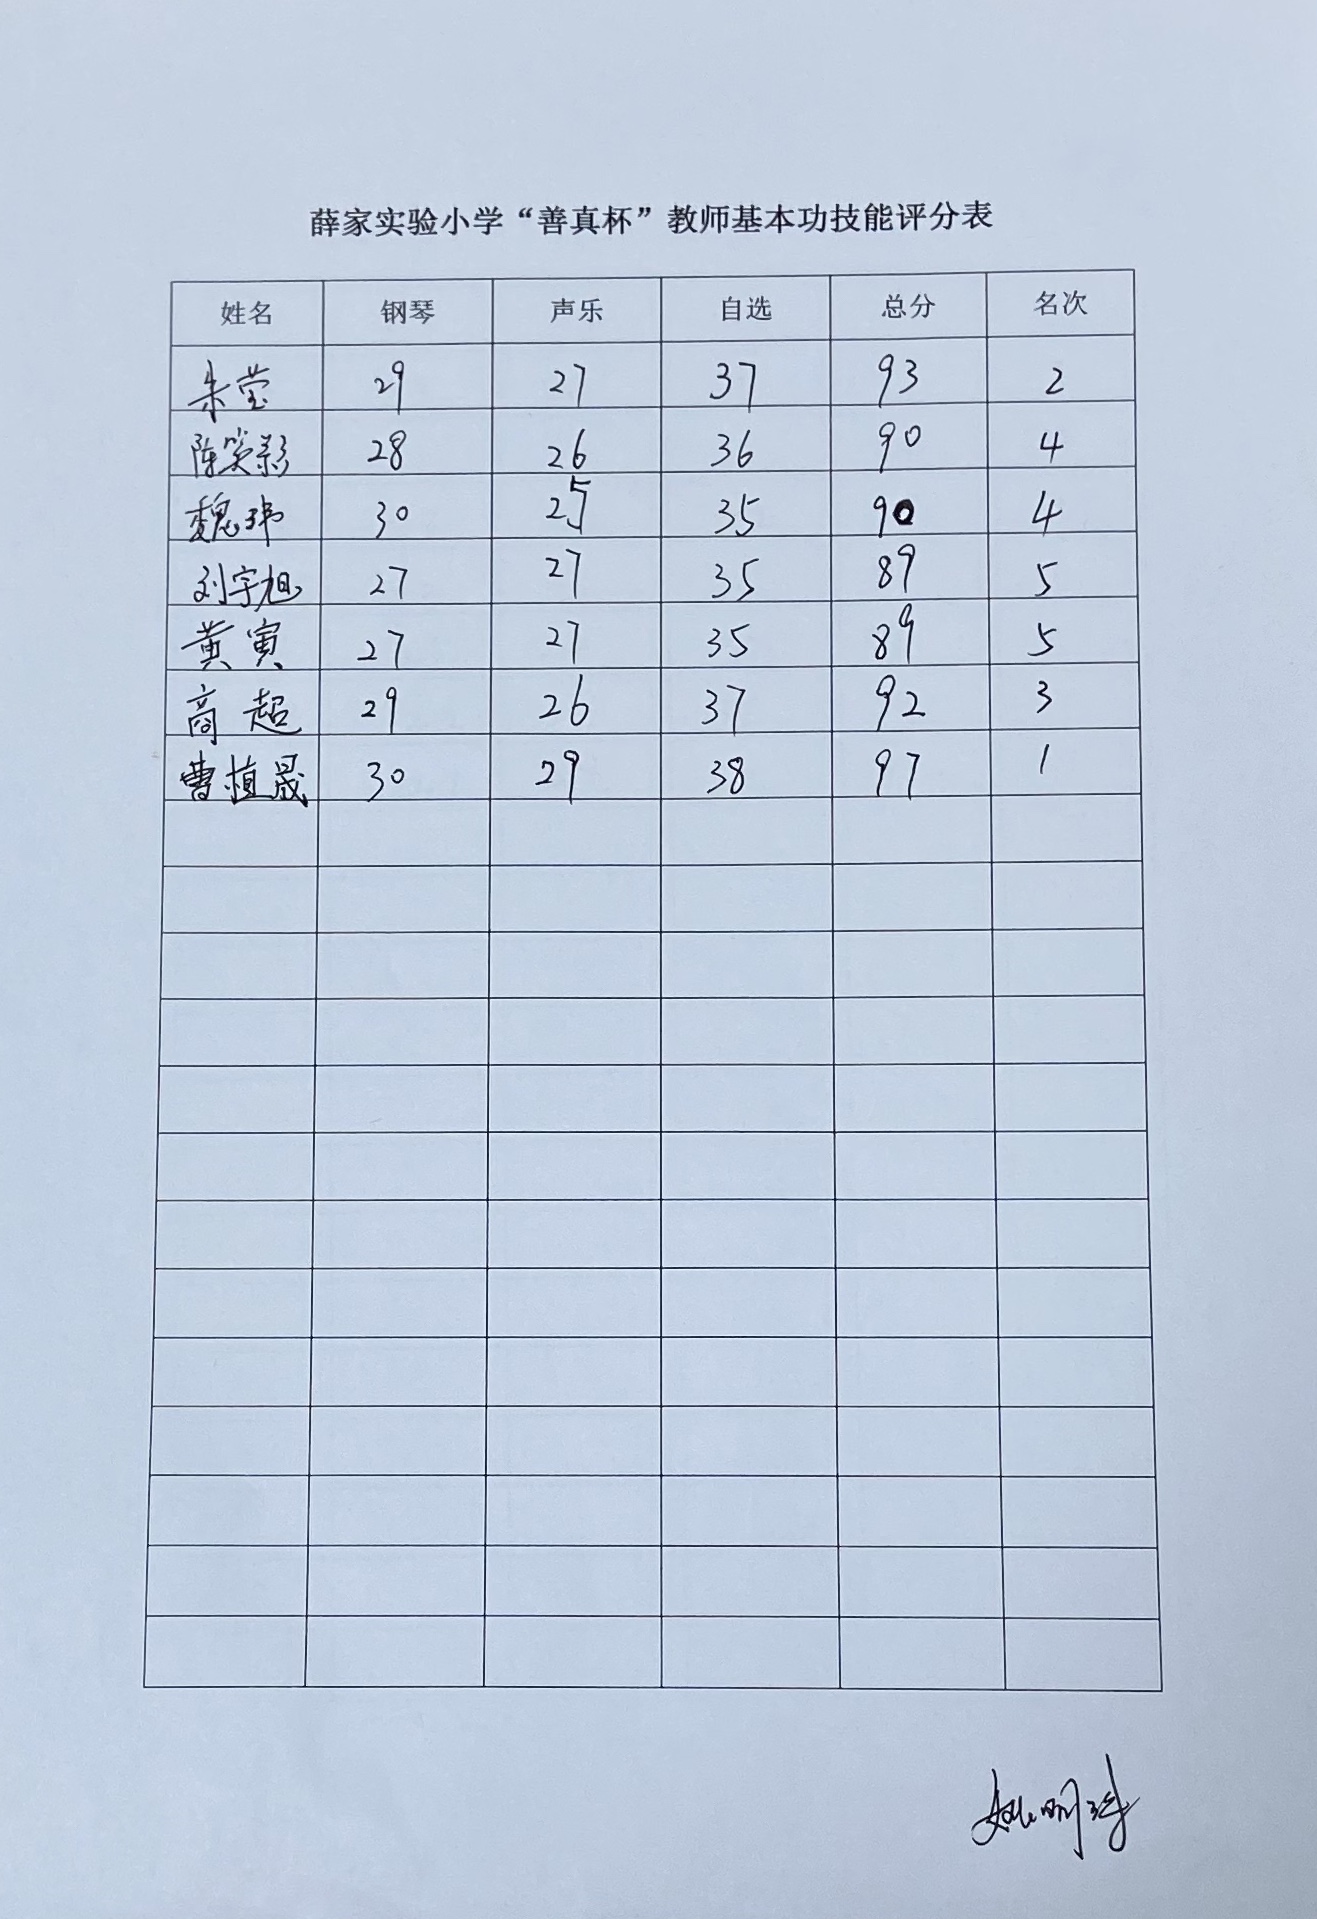 薛家实验小学“善真杯”教师基本功技能评分表
姓名 钢琴 声乐 自选 总分 名次
朱莹 29 27 37 93 2
陈笑影 28 26 36 90 4
魏玮 30 25 35 90 4
刘宇旭 27 27 35 89 5
黄寅 27 27 35 89 5
高超 29 26 37 92 3
曹植晟 30 29 38 97 1